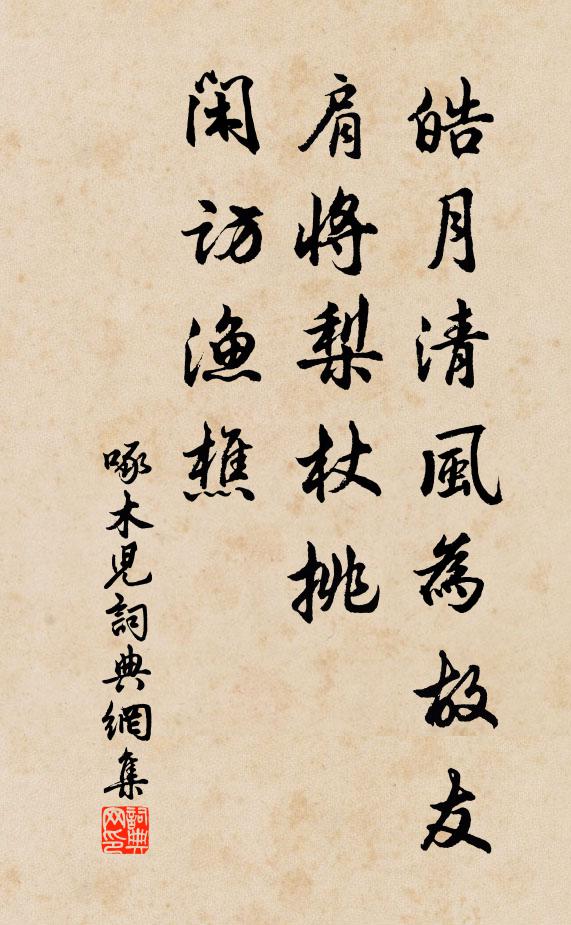 皓月清風為故友
肩將梨杖挑
閑訪漁樵
啄木兒詞典網集
詞典網印